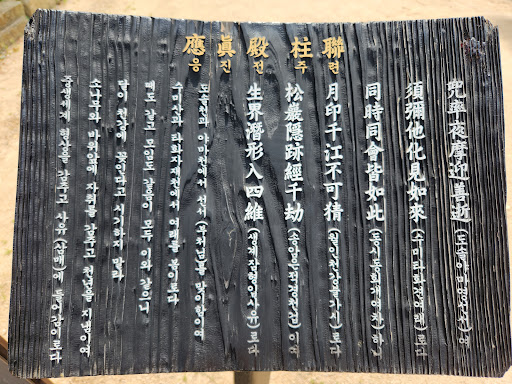 應眞殿柱聯
응진전주련
兜率夜摩迎善逝(도솔야마영선서)여
須彌他化見如來(수미타화견여래)로다
同時同會皆如此(동시동회개여차)하니
月印千江不可猜(월인천강불가시)로다
松巖隱跡經千劫(송암은적경천겁)이여
生界潛形入四維(생계잠형입사유)로다
도솔천과 야마천에서 선서(부처님)를 맞이함이여
수미와 타화자재천에서 여래를 뵈이로다
때도 같고 모임도 같음이 모두 이와 같으니
달이 천강에 꽂인다고 시기하지 말라
소나무와 바위앞에 자취를 감추고 천년을 지냄이여
중생세계 형상을 감추고 사유(삼매)에 들어감이로다